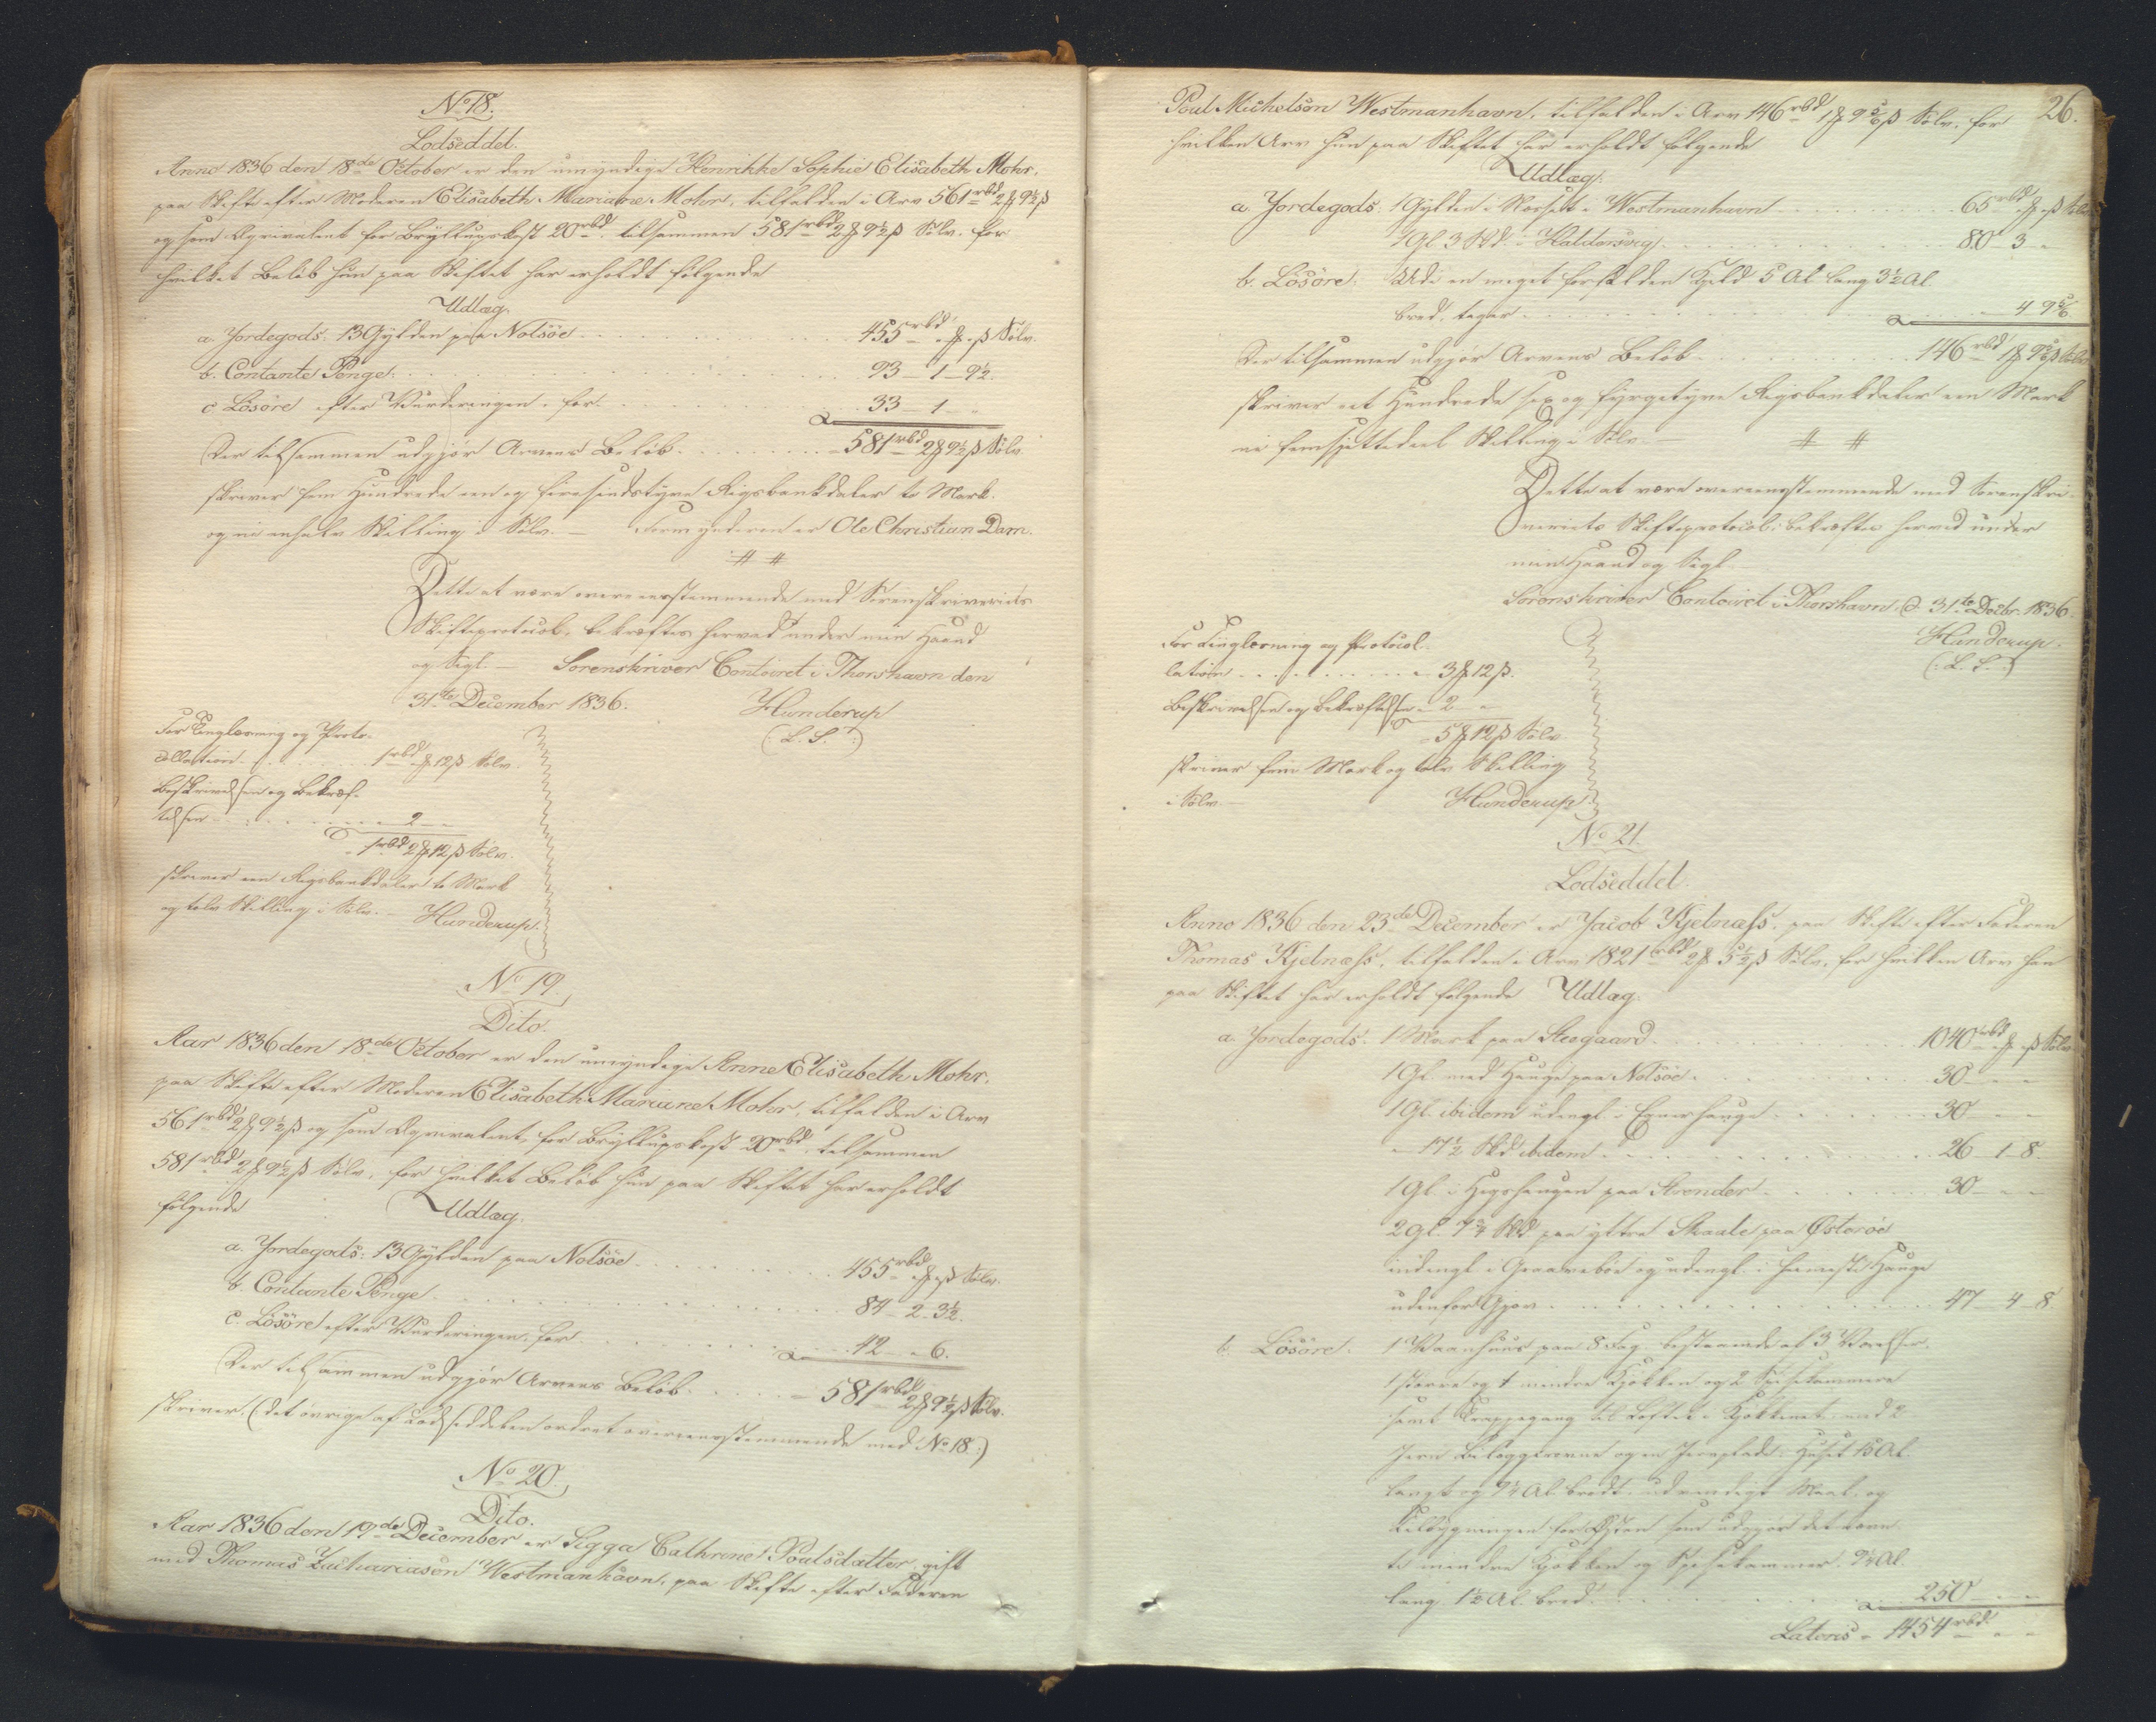 No 18.
Lodseddel.
Anno 1836 den 18de October er den umyndige Henrikke Sophie Elisabeth Mohr,
paa Skifte efter Moderen Elisabeth Mariane Mohr, tilfalden i Arv 561 rbd 2 ₰ 9½ ß
og som Æqvivalent for Bryllupskost 20 rbd. tilsammen 581 rbd 2 ₰ 9½ ß Sölv, for
hvilket Belöb hun paa Skiftet har erholdt fölgende
Udlæg.
a. Jordegods: 13 Gylden paa Nolsöe . . . 455 rbd „ ₰ „ ß Sölv.
b. Contante Penge: . . . 93 – 1 – 9½.
c. Lösöre efter Vurderingen, for . . . 33 – 1 – „
Der tilsammen udgjör Arvens Belöb . . . 581 rbd 2 ₰ 9½ ß Sölv.
skriver fem Hundrede een og fiirsindstyve Rigsbankdaler to Mark
og ni enhalv Skilling i Sölv. – Formynderen er Ole Christian Dam.
# #
Dette at være overeensstemmende med Sorenskriveriets
Skifteprotocol, bekræftes herved under min Haand
og Segl. – Sorenskriver Contoiret i Thorshavn den
31te December 1836.
Hunderup
(L. S.)
For Tinglæsning og Proto-
collation . . . 1 rbd „ ₰ 12 ß Sölv.
Beskrivelsen og Bekræf-
telsen . . . 2 – „
1 rbd 2 ₰ 12 ß Sölv.
skriver een Rigsbankdaler to Mark
og tolv Skilling i Sölv. – Hunderup.
No 19.
Dito.
Aar 1836 den 18de October er den umyndige Anne Elisabeth Mohr,
paa Skifte efter Moderen Elisabeth Mariane Mohr, tilfalden i Arv
561 rbd 2 ₰ 9½ ß og som Æqvivalent for Bryllupskost 20 rbd, tilsammen
581 rbd 2 ₰ 9½ ß Sölv, for hvilket Belöb hun paa Skiftet har erholdt
fölgende Udlæg.
a. Jordegods: 13 Gylden paa Nolsöe . . . 455 rbd „ ₰ „ ß Sölv.
b. Contante Penge . . . 84 – 2 – 3½.
c. Lösöre efter Vurderingen, for . . . 42 – „ 6.
Der tilsammen udgjör Arvens Belöb . . . 581 rbd 2 ₰ 9½ ß Sölv.
skriver. (det övrige af Lodseddelen ordret overeensstemmende med No 18.)
No 20.
Dito.
Aar 1836 den 19de December er Sigga Cathrine Poulsdatter, gift
med Thomas Zachariasen Westmanhavn, paa Skifte efter Faderen
26.
Poul Michelsen Westmanhavn, tilfalden i Arv 146 rbd 1 ₰ 9⅚ ß Sölv, for
hvilken Arv hun paa Skiftet har erholdt fölgende
Udlæg.
a. Jordegods: 1 Gylden i Westmanhavn . . . 65 rbd „ ₰ „ ß Sölv
1 Gl 3 Skd. i Haldorsvig . . . 80 – 3 – „
b. Lösöre: 5 Al lang 3½ Al.
bred, taxer . . . „ – 4 9⅚
Der tilsammen udgjör Arvens Belöb . . . 146 rbd 1 ₰ 9⅚ ß Sölv
skriver eet Hundrede sex og fyrgetyve Rigsbankdaler een Mark
ni femsjettedeel Skilling i Sölv – # #
Dette at være overeensstemmende med Sorenskri-
veriets Skifteprotocol, bekræftes herved under
min Haand og Segl
Sorenskriver Contoiret i Thorshavn, d. 31te Decbr. 1836.
Hunderup.
(L. S.)
For Tinglæsning og Protocol-
lation . . . 3 ₰ 12 ß.
Beskrivelsen og Bekræftelsen . 2 – „
5 ₰ 12 ß Sölv.
skriver fem Mark og tolv Skilling
i Sölv. – Hunderup
No 21.
Lodseddel.
Anno 1836 den 23de December er Jacob Kjelnæss, paa Skifte efter Faderen
Thomas Kjelnæss, tilfalden i Arv 1821 rbd 2 ₰ 5½ ß Sölv, for hvilken Arv han
paa Skiftet har erholdt fölgende Udlæg.
a. Jordegods. 1 Mark paa Steegaard . . . 1040 rbd „ ₰ „ ß Sölv.
1 Gl. med Hauge paa Nolsöe . . . 30 – „ – „
1 Gl. ibidem udengl. i . . . 30 – „ – „
„ – 17½ Skd ibidem . . . 26 – 1 – 8.
1 Gl. i paa Strender . . . 30 – „ – „
2 Gl. 7¾ Skd. paa yttre Skaale paa Østeröe
indengl. i og udengl. i Hauge
udenfor Gjov . . . 47 – 4 – 8
b. Lösöre. 1 Vaanhuus paa 8 Fag bestaaende af 3 Værelser,
1 större og 1 mindre Kjökken og 2 Spisekammere
samt Trappegang til Loftet i Kjökkenet, med 2
Jern Bilæggerovne og en Jernplade. Huset 15 Al.
langt og 9¼ Al. bredt, udvendigt Maal, og
Tilbygningen for Østen som udgjör det nævn-
te mindre Kjökken og Spisekammer, 9¼ Al.
lang, 1½ Al. bred . . . 250 – „ – „
Lateris . 1454 rbd „ – „